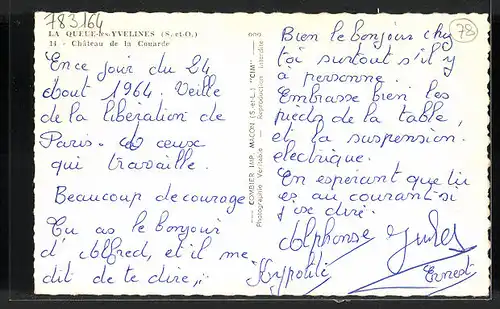 783164
LA QUEUE-les-YVELINES (S.-et-O.)
11 - Château de la Couarde
En ce jour du 24
août 1964. Veille
de la libération de
Paris. et ceuse
qui travaille.
Beaucoup de courage
Tu as le bonjour
d'Alfred, et il me
dit de te dire,
COMBIER IMP. MACON (S.-et-L.) "CIM"
Photographie Véritable - Reproduction interdite
78
Bien le bonjour chez
toi surtout s'il y
a personne.
Embrasse bien les
pieds de la table,
et la suspension
électrique.
En espérant que tu
es au courant si
j'ose dire.
Alphonse Jules
Hypolite Ernest